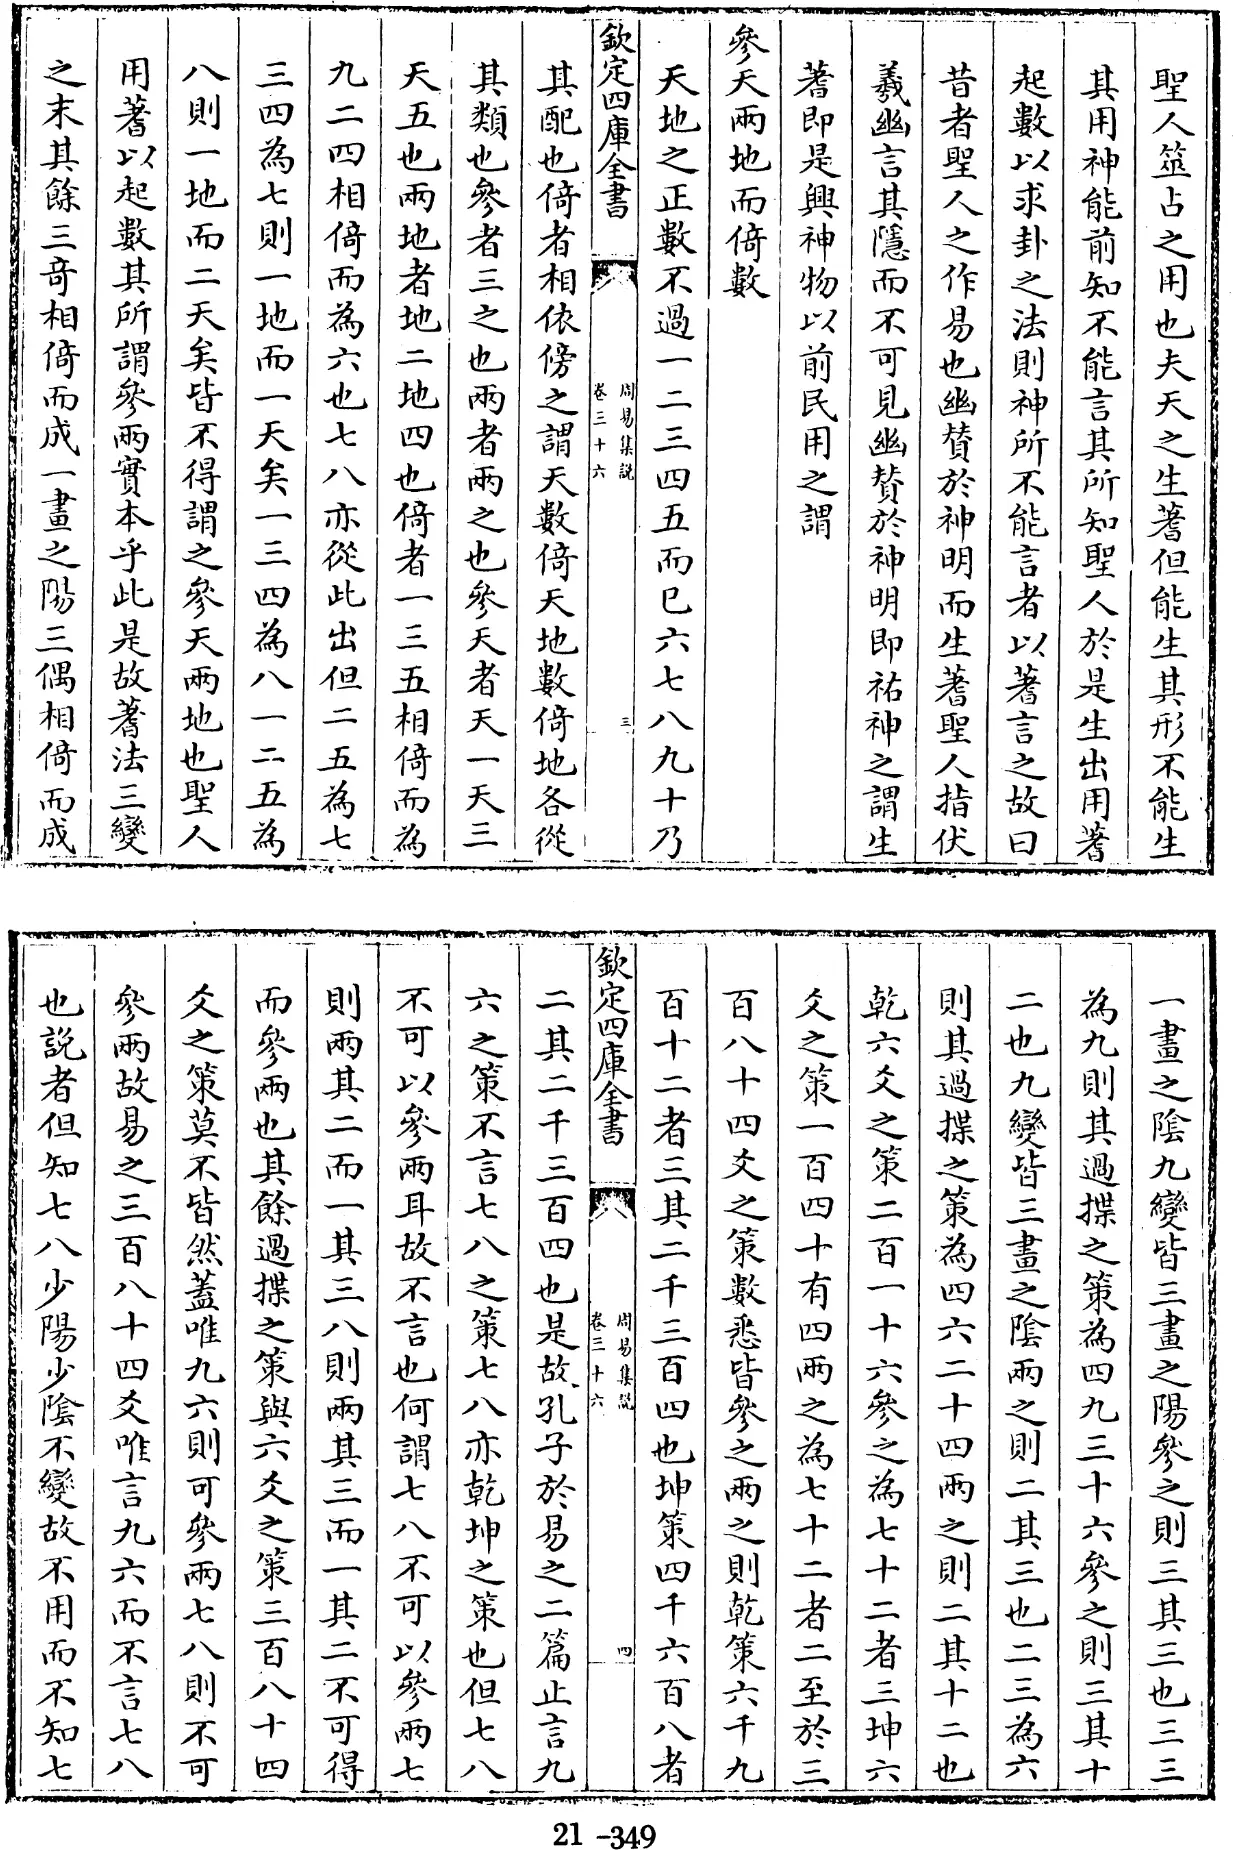 聖人筮占之用也夫天之生蓍但能生其形不能生
其用神能前知不能言其所知聖人於是生出用蓍
起數以求卦之法則神所不能言者以蓍言之故曰
昔者聖人之作易也幽賛於神明而生蓍聖人指伏
羲幽言其隱而不可見幽賛於神明即祐神之謂生
蓍即是興神物以前民用之謂
參天兩地而倚數
天地之正數不過一二三四五而已六七八九十乃
欽定四庫全書
周易集説
卷三十六
三
其配也倚者相依傍之謂天數倚天地數倚地各從
其類也參者三之也兩者兩之也參天者天一天三
天五也兩地者地二地四也倚者一三五相倚而為
九二四相倚而為六也七八亦從此出但二五為七
三四為七則一地而一天矣一三四為八一二五為
八則一地而二天矣皆不得謂之參天兩地也聖人
用蓍以起數其所謂參兩實本乎此是故蓍法三變
之末其餘三竒相倚而成一畫之陽三偶相倚而成
一畫之陰九變皆三畫之陽參之則三其三也三三
為九則其過揲之策為四九三十六參之則三其十
二也九變皆三畫之陰兩之則二其三也二三為六
則其過揲之策為四六二十四兩之則二其十二也
乾六爻之策二百一十六參之為七十二者三坤六
爻之策一百四十有四兩之為七十二者二至於三
百八十四爻之策數悉皆參之兩之則乾策六千九
百十二者三其二千三百四也坤策四千六百八者
欽定四庫全書
周易集説
卷三十六
四
二其二千三百四也是故孔子於易之二篇止言九
六之策不言七八之策七八亦乾坤之策也但七八
不可以參兩耳故不言也何謂七八不可以參兩七
則兩其二而一其三八則兩其三而一其二不可得
而參兩也其餘過揲之策與六爻之策三百八十四
爻之策莫不皆然蓋唯九六則可參兩七八則不可
參兩故易之三百八十四爻唯言九六而不言七八
也説者但知七八少陽少陰不變故不用而不知七
21-349